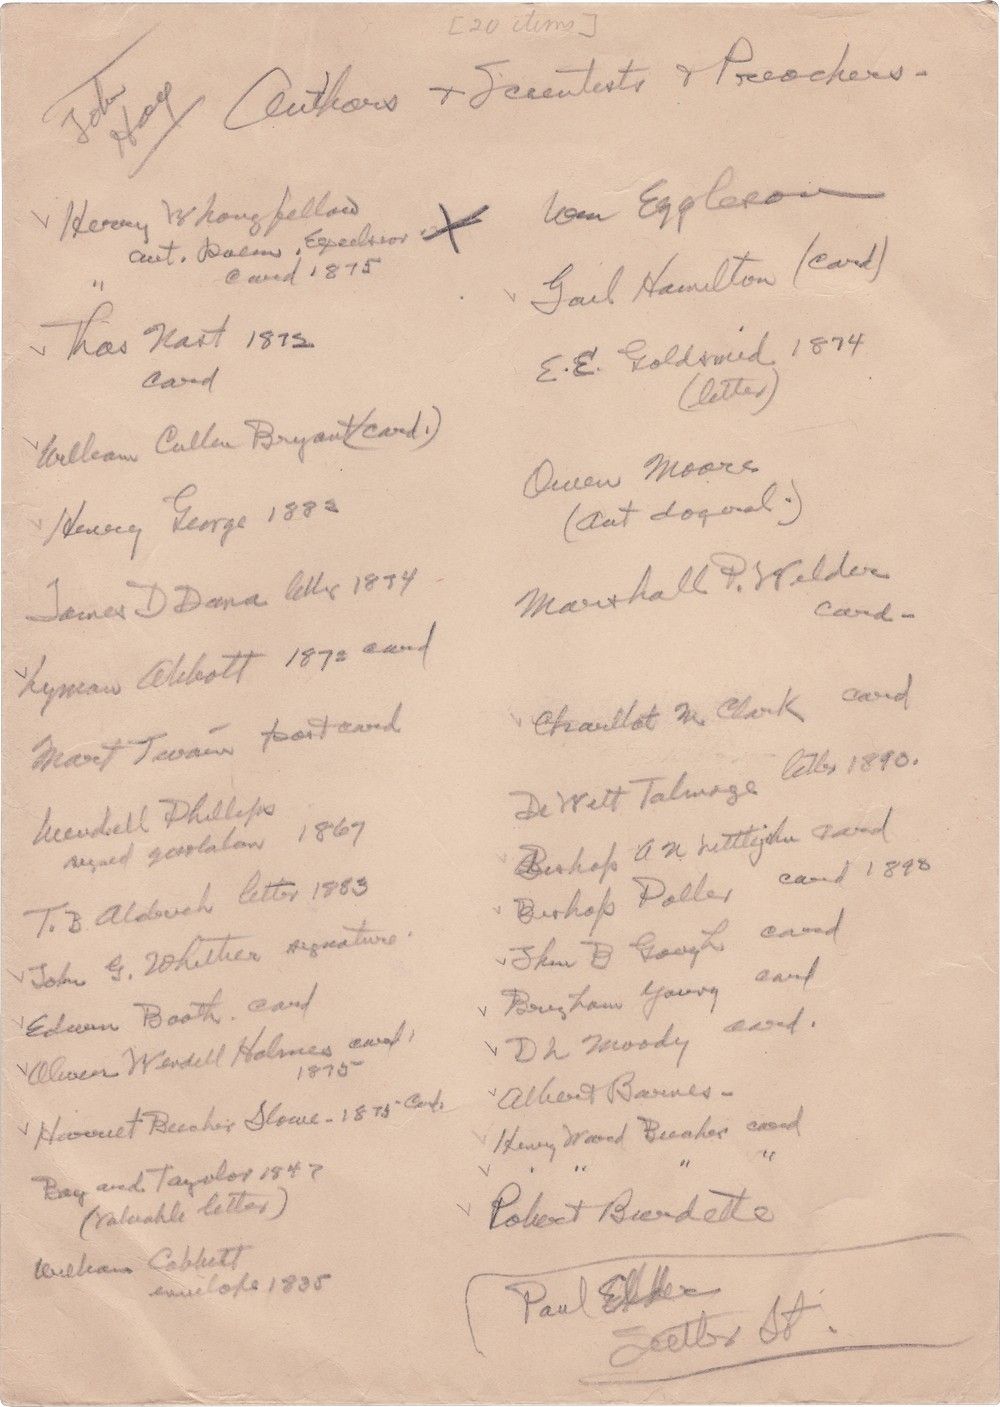 [20 items]
John Hay
Authors + Scientists + Preachers-
Henry W Longfellow
aut. poem. Excelsior
" card 1875
Thos Nast 1872
card
William Cullen Bryant (card.)
Henry George 1883
James D Dana letter 1874
Lyman Abbott 1872 card
Mark Twain post card
Wendell Phillips
signed quotation 1867
T. B Aldrich letter 1883
John G. Whittier signature.
Edwin Booth. card
Oliver Wendell Holmes card.
1875
Harriet Beecher Stowe - 1875 Card.
Bayard Taylor 1847
(valuable letter)
William Cobbett
envelope 1835
Wm Eggleson
Gail Hamilton (card)
E.E. Goldsmid 1874
(letter)
Owen Moore
(Aut)
Marshall P. Wilder
card -
Charllot M. Clark card
DeWitt Talmage letter 1890.
Bishop A N Littlejohn card
Bishop Potter card 1898
John B Gough card
Brigham Young card
D L Moody card.
Albert Barnes -
Henry Ward Beecher card
" " " "
Robert Burdette
Paul
St.